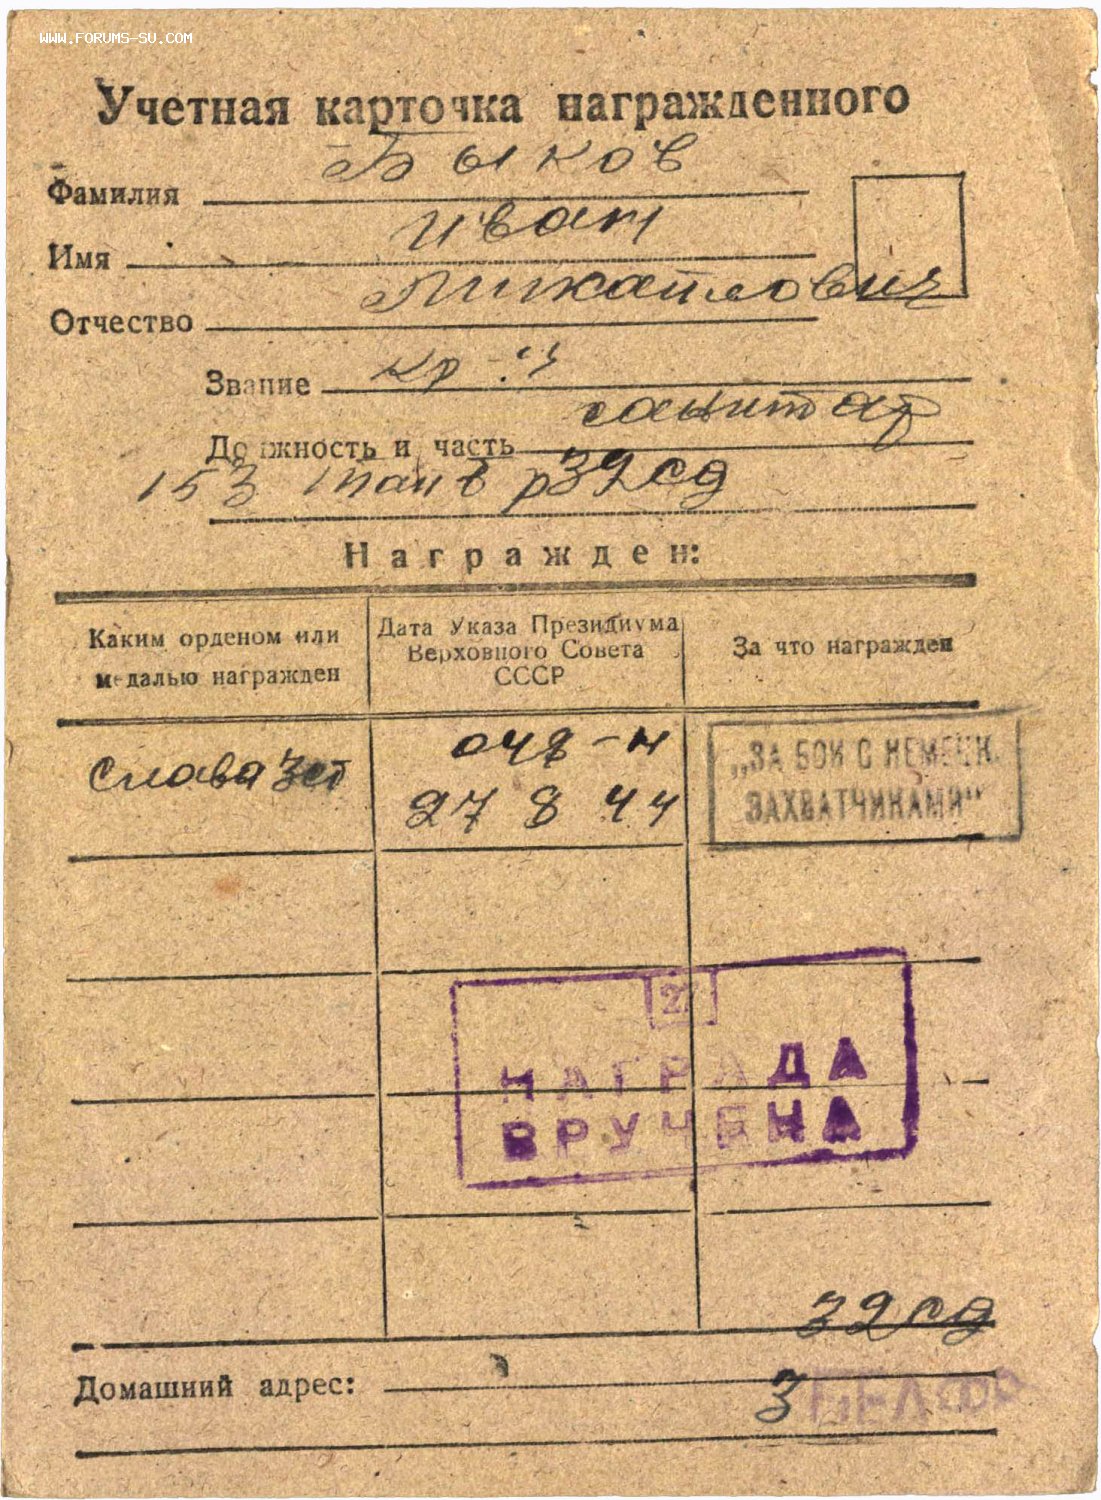 WWW.FORUMS-SU.COM
Учетная карточка награжденного
Фамилия Быков
Имя Иван
Отчество Михайлович
Звание кр-ц
Должность и часть санитар
153 32сд
Награжден:
Каким орденом или медалью награжден
Дата Указа Президиума Верховного Совета СССР
За что награжден
Слава 3ст
048-н
27 8 44
„ЗА БОИ С НЕМЕЦК. ЗАХВАТЧИКАМИ"
2
НАГРАДА
ВРУЧЕНА
32сд
Домашний адрес:
3